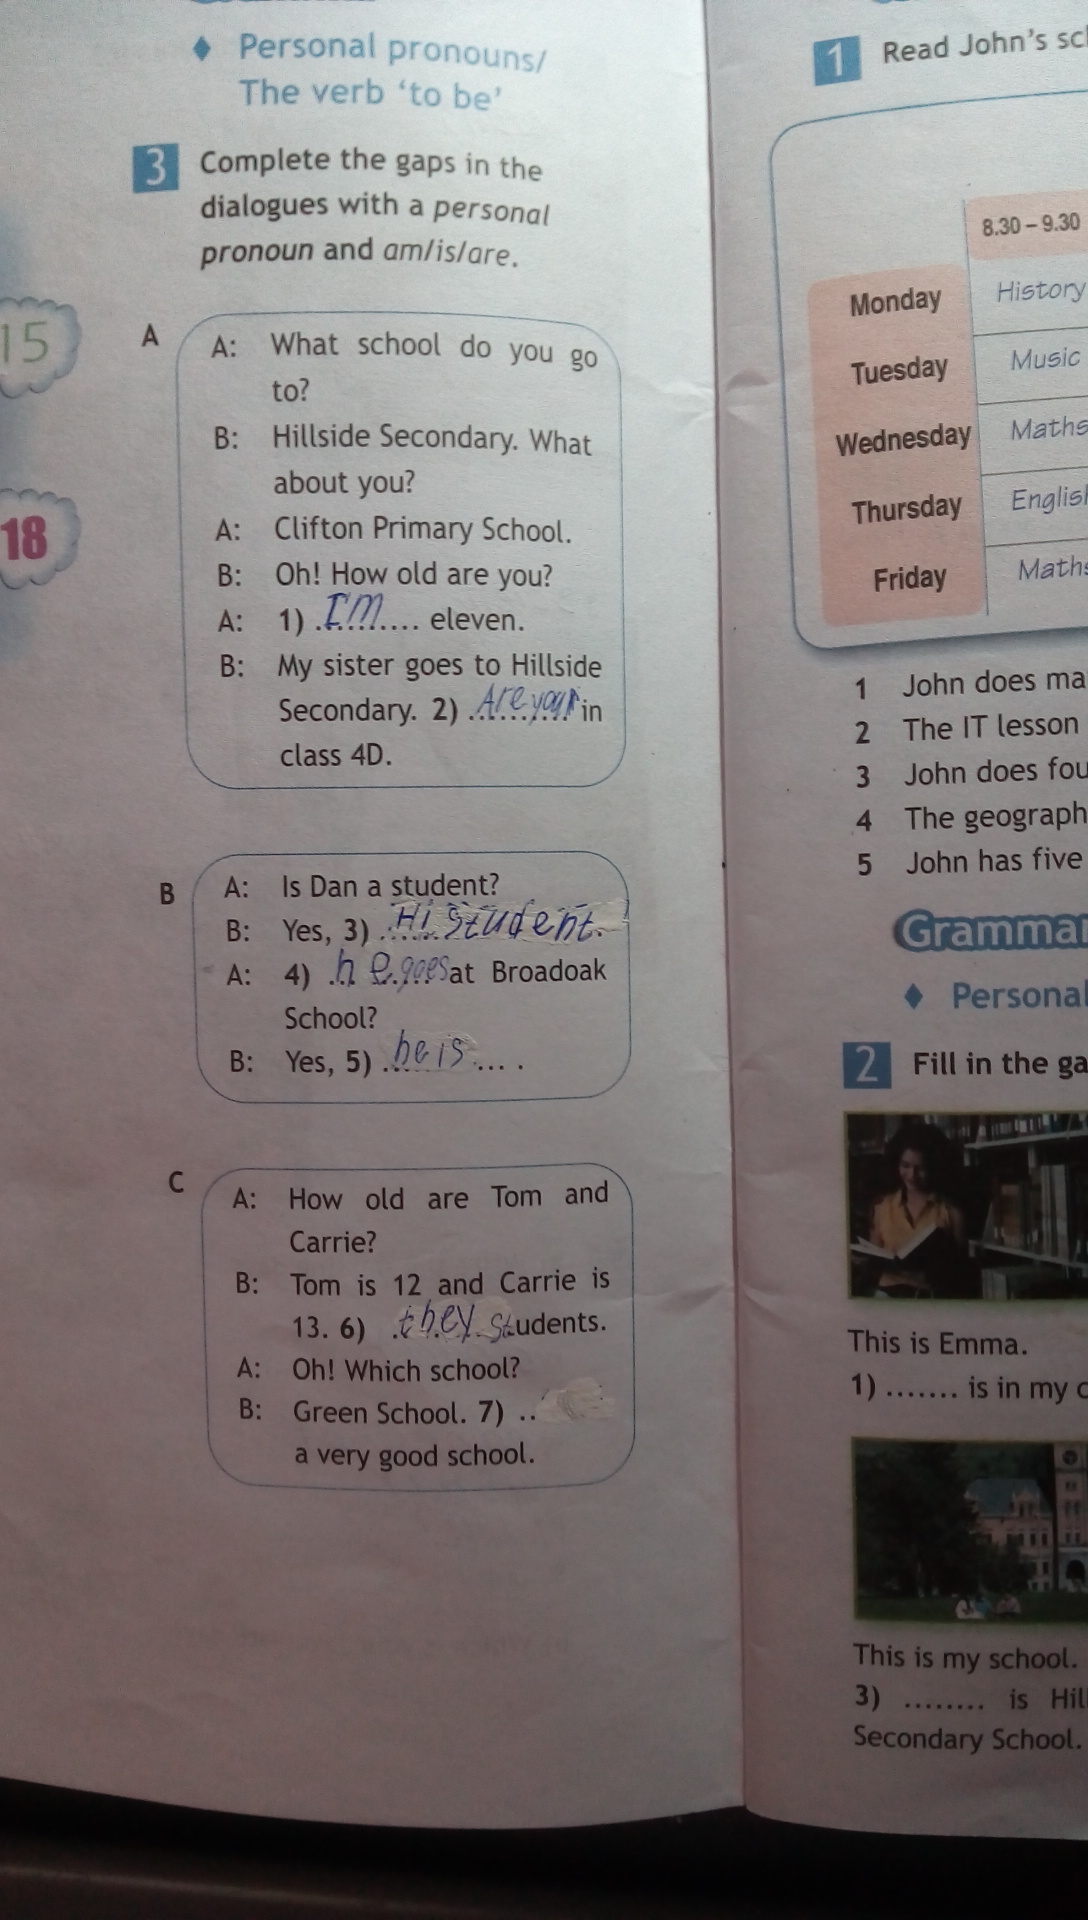 Personal pronouns/
The verb 'to be'
3 Complete the gaps in the
dialogues with a personal
pronoun and am/is/are.
15
18
A
A: What school do you go
to?
B: Hillside Secondary. What
about you?
A: Clifton Primary School.
B: Oh! How old are you?
A: 1) .I'm.... eleven.
B: My sister goes to Hillside
Secondary. 2) ..Are your in
class 4D.
B
A: Is Dan a student?
B: Yes, 3) .Hi student.
A: 4) .he.goes at Broadoak
School?
B: Yes, 5) ..he is.... .
C
A: How old are Tom and
Carrie?
B: Tom is 12 and Carrie is
13. 6) .they.students.
A: Oh! Which school?
B: Green School. 7) ..
a very good school.
1 Read John's
8.30 – 9.30
Monday History
Tuesday Music
Wednesday Maths
Thursday
Friday
1 John does
2 The IT lesson
3 John does
4 The
5 John has five
♦
2 Fill in the
This is Emma.
1) ....... is in my
This is my school.
3) ........ is
Secondary School.